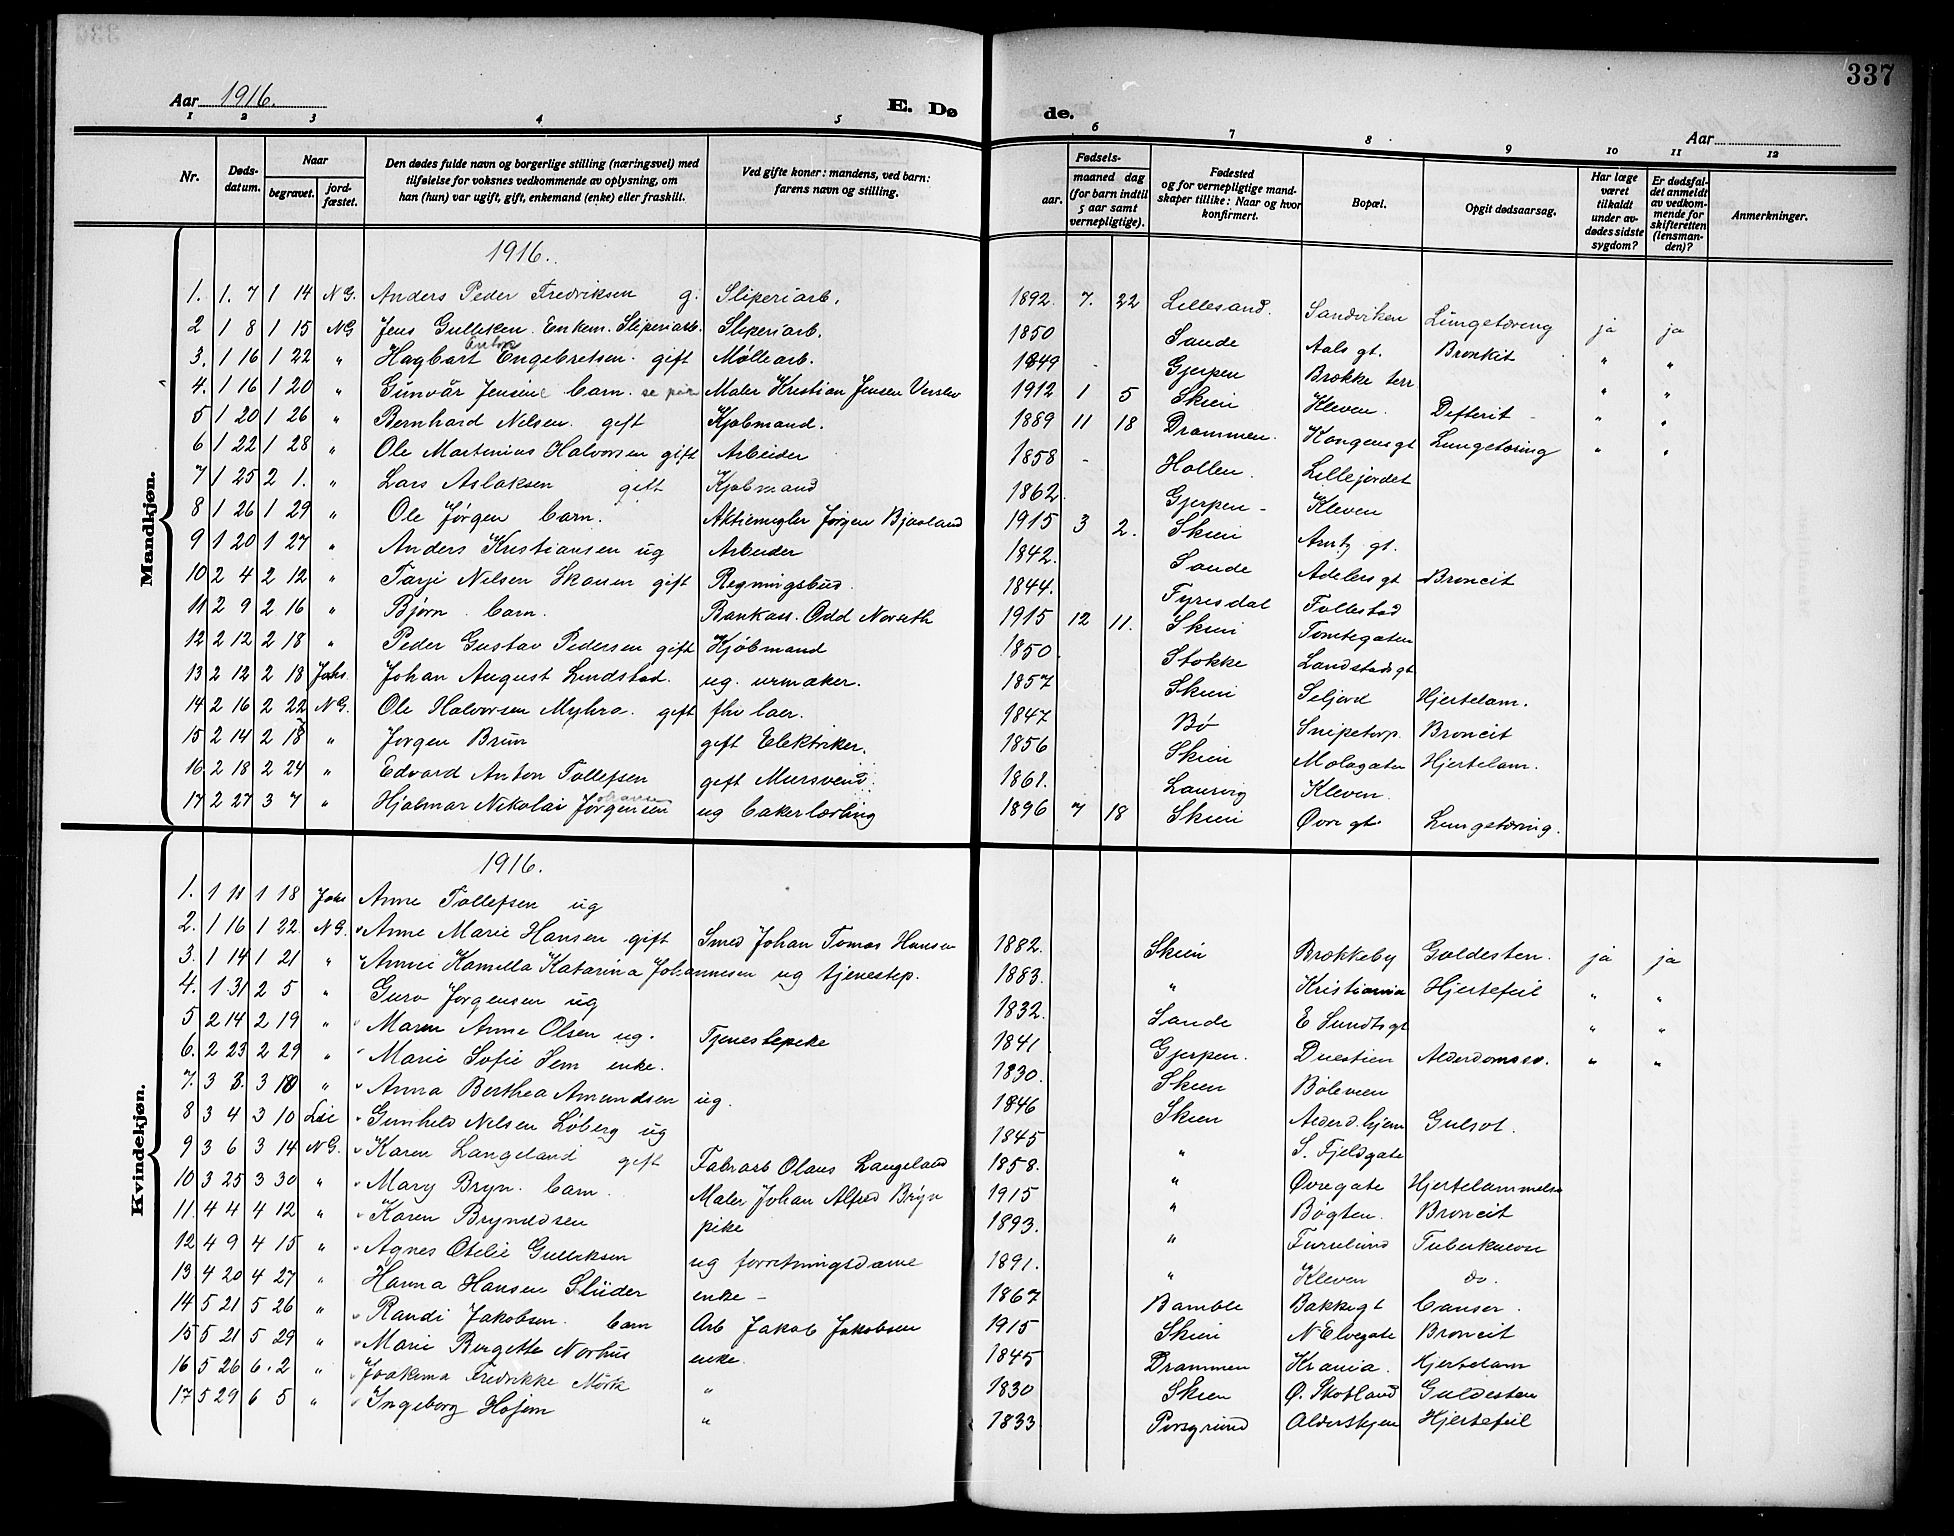 337
Aar 1916. E. Dø de. Aar
1 2 3 4 5 6 7 8 9 10 11 12
Nr. Døds-datum. Naar begravet. jord-fæstet. Den dødes fulde navn og borgerlige stilling (næringsvei) med tilføielse for voksnes vedkommende av oplysning, om han (hun) var ugift, gift, enkemand (enke) eller fraskilt. Ved gifte koner: mandens, ved barn: farens navn og stilling. Fødsels- aar. maaned dag (for barn indtil 5 aar samt vernepligtige). Fødested og for vernepligtige mand-skaper tillike: Naar og hvor konfirmert. Bopæl. Opgit dødsaarsag. Har læge været tilkaldt under av-dødes sidste sygdom? Er dødsfal-det anmeldt av vedkom-mende for skifteretten (lensman-den)? Anmerkninger.
Mandkjøn.
1916.
1. 1. 7 1 14 NG. Anders Peder Fredriksen g. Sliperiarb. 1892. 7. 22 Lillesand. Sandviken Lungetæring ja ja
2 1 8 1 15 NG Jens Gulliksen. Enkem. Sliperiarb. Sliperiarb. 1850 Sande Aals gt. Bronkit " "
Anton
3. 1 16 1 22 " Hagbart Engebretsen. gift Møllearb. 1849 - Gjerpen Brække terr " "
4. 1 16 1 20 " Gunvår Jensine barn. se pik Maler Kristian Jensen 1912 1 5 Skien Kleven. Defterit - " "
5 1 20 1 26 " Bernhard Nilsen. gift Kjøbmand. 1889 11 18 Drammen. Kongensgt Lungetæring " "
6 1 22 1 28 " Ole Martinius Halvorsen gift Arbeider 1858 - Hollen. Lillejordet
7 1 25 2 1. " Lars Aslaksen gift Kjøbmand 1862. Gjerpen - Kleven
8 1 26 1 29 " Ole Jørgen barn. Aktiemegler Jørgen Bjaaland 1915 3 2. Skien Arntz gt.
9 1 20 1 27 " Anders Kristiansen ug Arbeider 1842. Sande Adelers gt Broncit
10 2 4 2 12 " Tarje Nilsen Skauen gift Regningsbud. 1844. Fyresdal Follestad
11 2 9 2 16 " Bjørn. barn. Bankass. Odd 1915 12 11. Skien Tomtegaten
12 2 12 2 18 " Peder Gustav Pedersen gift Kjøbmand 1850. Stokke Landstadsgt
13 2 12 2 18 Johs. Johan August Lindstad. ug. urmaker. 1857 Skien Seljord Hjertelam.
14 2 16 2 22 NG. Ole Halvorsen Myhra. gift fhv laer. 1847 Bø Snipetorp. Broncit
15 2 14 2 18 " Jørgen Brun gift Elektriker. 1856 Skien Mologaten Hjertelam.
16. 2 18 2 24 " Edvard Anton Tollefsen gift Mursvend. 1861. Laurvig Kleven.
17 2 27 3 7 " Hjalmar Nikolai Jørgensen ug bakerlærling 1896 7 18 Skien Øvre gt. Lungetæring.
Kvindekjøn.
1916.
1. 1 11 1 18 Johs Anne Tollefsen ug
2. 1 16 1 22. NG. Anne Marie Hansen gift Smed Johan Tomas Hansen 1882. Skien Brækkeby Galdesten. ja ja
3. 1 14 1 21 " Annie Kamilla Katarina Johannesen ug tjenestep. 1883. " Kristiania Hjertefeil " "
4. 1 31 2 5 " Guro Jørgensen ug 1832. Sande E Sundts gt " "
5 2 14 2 19 " Maren Anne Olsen ug. Tjenestepike 1841 Gjerpen. Duestien Alderdomssv. " "
6. 2 23 2 29 " Marie Sofie Hem enke. 1830. Skien Bøleveien
7. 3 8. 3 10 " Anna Berthea Amundsen ug. 1846 Skien Alderd. hjem Gulsot.
8 3 4 3 10 Lie Gunhild Nilsen Løberg ug 1845 " S. Fjeldgate
9 3 6 3 14 NG. Karen Langeland gift Fabrarb Olaus Langeland 1858. " Øvregate Hjertelammelse
10 3 25 3 30 " Mary Bryn. barn. Maler Johan Alfred Bryn 1915 " Bøgten. Broncit
11. 4 4 4 12 " Karen Brynildsen pike 1893. " Furulund Tuberkulose
12 4 9 4 15 " Agnes Otelie Gulliksen ug forretningsdame 1891. " Kleven do.
13 4 20 4 27 " Hanna Hansen Slüder enke - 1867 Bamble Bakkegt Canser.
14 5 21 5 26 " Randi Jakobsen. barn Arb Jakob Jakobsen 1915 Skien N Elvegate Broncit
15 5 21 5 29 " Marie Bergette Norhus enke. 1845 Drammen Krania. Hjertelam
16 5 26 6. 2 " Joakima Fredrikke Mørk " 1830 Skien Ø. Skotland Galdesten
17 5 29 6 5 " Ingeborg Hojem " 1833 Porsgrund Aldershjem Hjertefeil